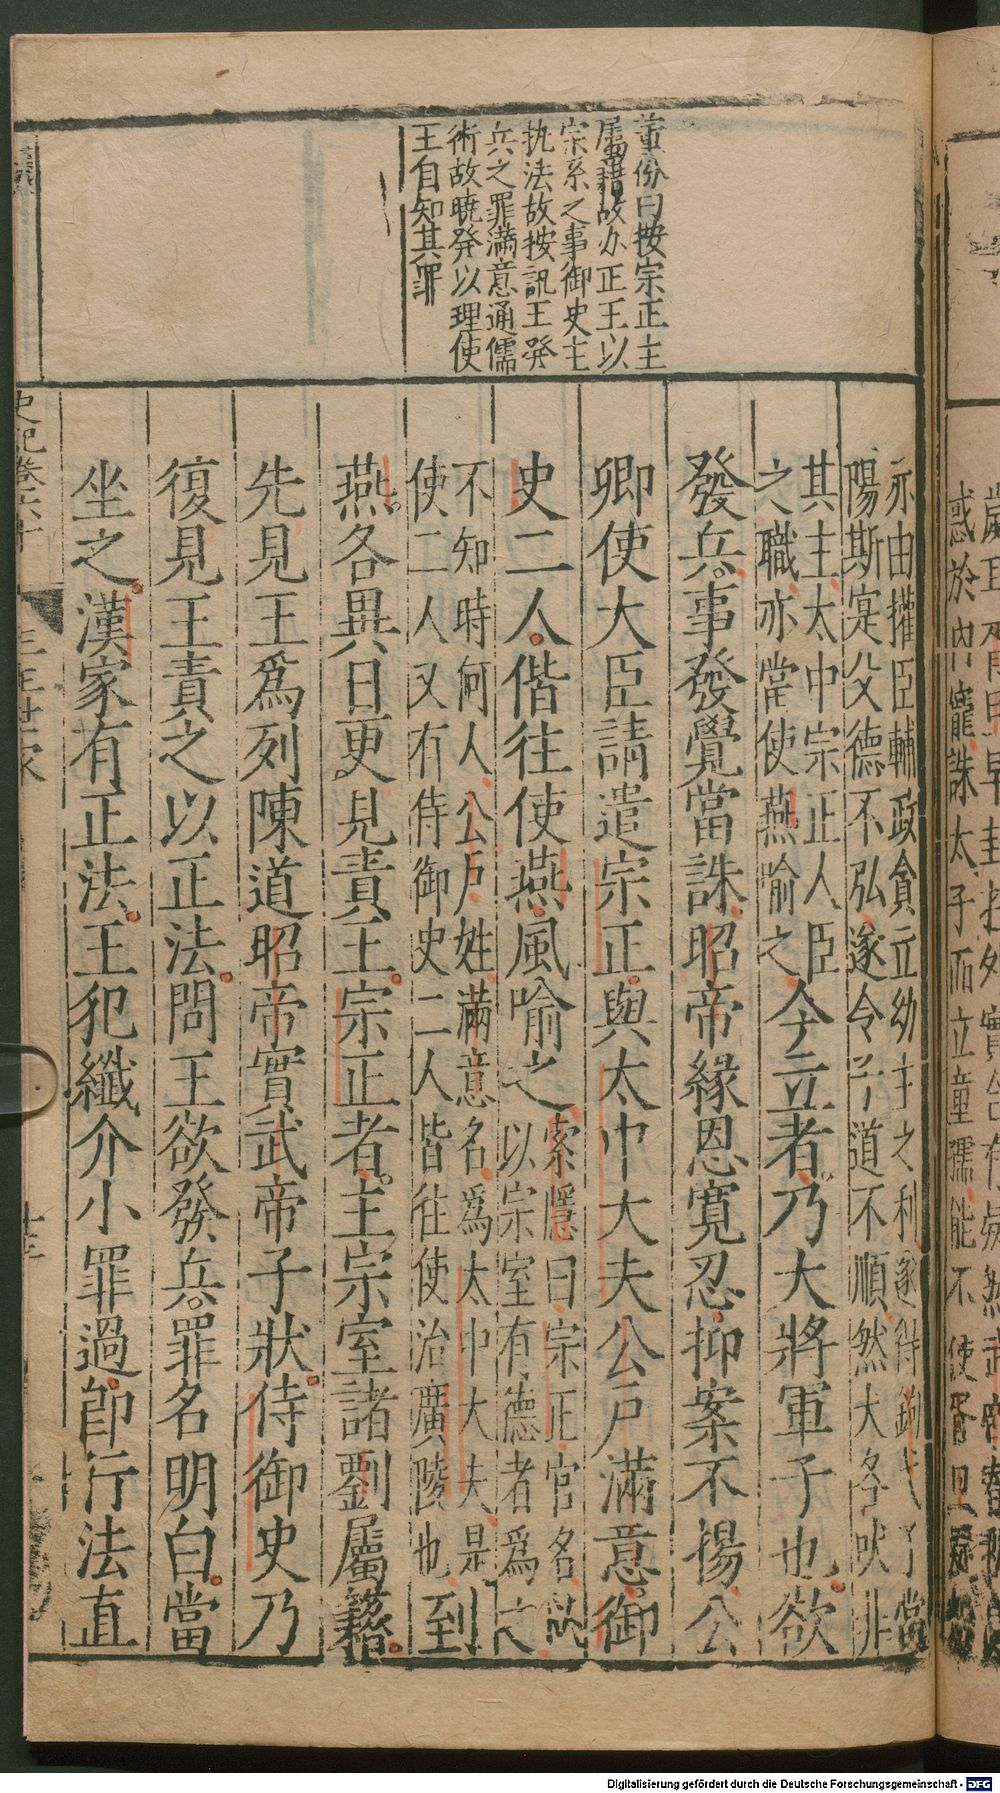 董份曰按宗正主
屬籍故亦正王以
宗系之事御史主
执法故按訊王發
兵之罪滿意通儒
術故暁發以理使
王自知其罪
亦由權臣輔政貪立幼主之利遂得鉤弋子當
陽斯寔父德不弘遂令子道不順然大各吠非
其主太中宗正人臣
之職亦當使燕喻之今立者乃大將軍子也欲
發兵事發覺當誅昭帝緣恩寬忍抑案不揚公
卿使大臣請遣宗正與太中大夫公戶滿意御
史二人偕往使燕風喻之
索隱曰宗正官名
以宗室有德者為之
不知時何人公戶姓滿意名為太中大夫是
使二人又有侍御史二人皆往使治廣陵也到
燕各異日更見責王宗正者主宗室諸劉屬籍
先見王為列陳道昭帝實武帝子狀侍御史乃
復見王責之以正法問王欲發兵罪名明白當
坐之漢家有正法王犯纖介小罪過卽行法直
史記卷六十
三王世家
惑於內寵誅太子而立童孺能不使
Digitalisierung gefördert durch die Deutsche Forschungsgemeinschaft - DFG